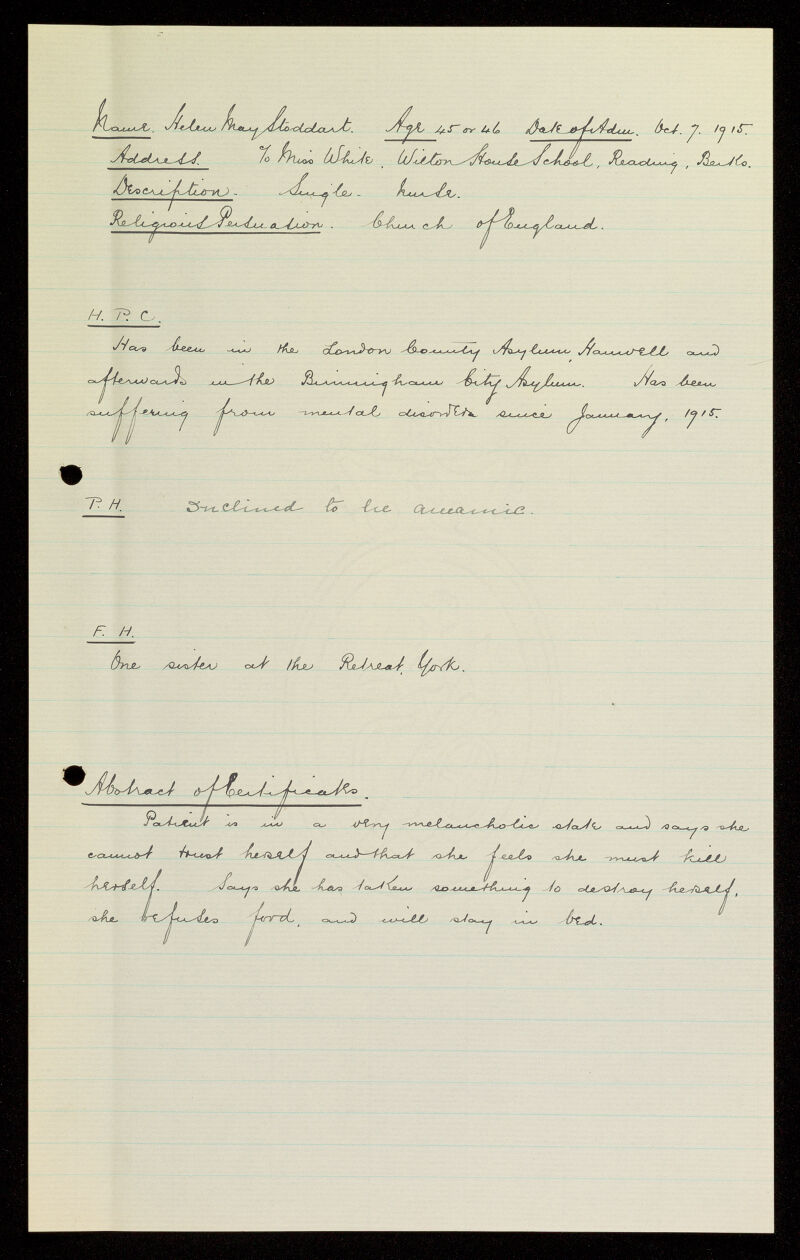 Name. Helen May Stoddart. Age 45 or 46 Date of Adm. Oct. 7. 1915.
Address. c/o Miss White, Wilton House School, Reading, Berks.
Description. Single. Nurse.
Religious Persuation. Church of England.
H. P. C.
Has been in the London County Asylum, Hanwell and
afterwards in the Birmingham City Asylum. Has been
suffering from mental disorders since January, 1915.
P. H. Inclined to be anaemic.
F. H.
One sister at the Retreat, York.
Abstract of Certificates.
Patient is in a very melancholic state and says she
cannot trust herself and that she feels she must kill
herself. Says she has taken something to destroy herself,
she refuses food, and will stay in bed.